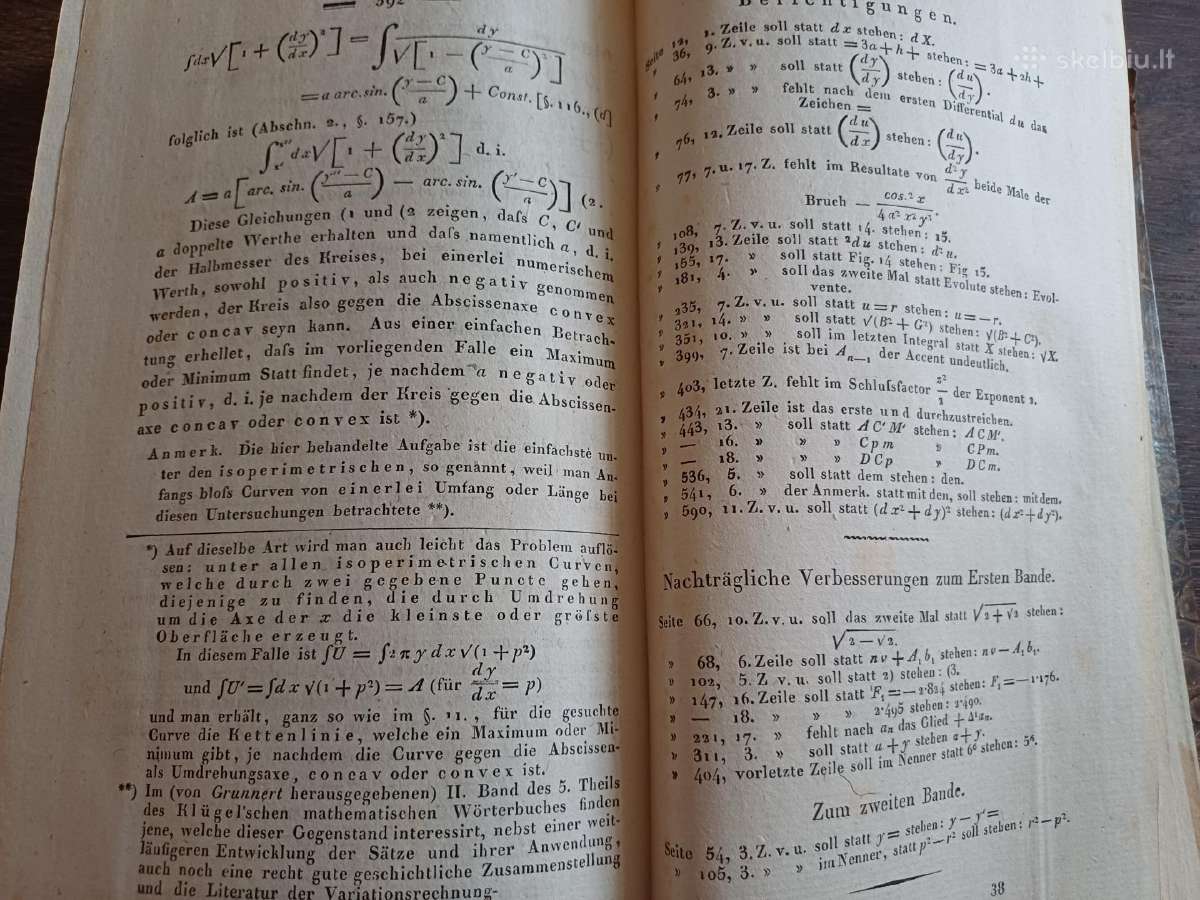 592
∫dx√[1 + (dy/dx)²] = ∫ dy / √[1 − ((y − C)/a)²]
= a arc.sin. ((y − C)/a) + Const. [§. 116., (d]
folglich ist (Abschn. 2., §. 157.)
dx√[1 + (dy/dx)²] d. i.
A = a [arc. sin. ((y''' − C)/a) — arc. sin. ((y' − C)/a)] (2.
Diese Gleichungen (1 und (2 zeigen, daſs C, C' und
a doppelte Werthe erhalten und daſs namentlich a, d. i.
der Halbmesser des Kreises, bei einerlei numerischem
Werth, sowohl positiv, als auch negativ genommen
werden, der Kreis also gegen die Abscissenaxe convex
oder concav seyn kann. Aus einer einfachen Betrach-
tung erhellet, daſs im vorliegenden Falle ein Maximum
oder Minimum Statt findet, je nachdem a negativ oder
positiv, d. i. je nachdem der Kreis gegen die Abscissen-
axe concav oder convex ist *).
Anmerk. Die hier behandelte Aufgabe ist die einfachste un-
ter den isoperimetrischen, so genannt, weil man An-
fangs bloſs Curven von einerlei Umfang oder Länge bei
diesen Untersuchungen betrachtete **).
*) Auf dieselbe Art wird man auch leicht das Problem auflö-
sen: unter allen isoperimetrischen Curven,
welche durch zwei gegebene Puncte gehen,
diejenige zu finden, die durch Umdrehung
um die Axe der x die kleinste oder gröſste
Oberfläche erzeugt.
In diesem Falle ist ∫U = ∫2 π y dx √(1 + p²)
und ∫U' = ∫dx √(1 + p²) = A (für dy/dx = p)
und man erhält, ganz so wie im §. 11., für die gesuchte
Curve die Kettenlinie, welche ein Maximum oder Mi-
nimum gibt, je nachdem die Curve gegen die Abscissen-
als Umdrehungsaxe, concav oder convex ist.
**) Im (von Grunnert herausgegebenen) II. Band des 5. Theils
des Klügel'schen mathematischen Wörterbuches finden
jene, welche dieser Gegenstand interessirt, nebst einer weit-
läufigeren Entwicklung der Sätze und ihrer Anwendung,
auch noch eine recht gute geschichtliche Zusammenstellung
und die Literatur der Variationsrechnung-
Berichtigungen.
Seite 12, 1. Zeile soll statt dx stehen: dX.
» 36, 9. Z. v. u. soll statt = 3a + h + stehen: = 3a + 2h +
» 64, 13. » » soll statt (dy/dy) stehen: (du/dy).
» 74, 3. » » fehlt nach dem ersten Differential du das
Zeichen =
» 76, 12. Zeile soll statt (du/dx) stehen: (du/dy).
» 77, 7. u. 17. Z. fehlt im Resultate von d²y/dx² beide Male der
Bruch — cos.² x / 4 a² x² y³.
» 108, 7. Z. v. u. soll statt 14. stehen: 15.
» 139, 13. Zeile soll statt ²du stehen: d²u.
» 155, 17. » soll statt Fig. 14 stehen: Fig 15.
» 181, 4. » soll das zweite Mal statt Evolute stehen: Evol-
vente.
» 235, 7. Z. v. u. soll statt u = r stehen: u = −r.
» 321, 14. » » soll statt √(B² + G²) stehen: √(B² + C²).
» 351, 10. » » soll im letzten Integral statt X stehen: √X.
» 399, 7. Zeile ist bei Aₙ₋₁ der Accent undeutlich.
» 403, letzte Z. fehlt im Schluſsfactor z²/2 der Exponent 2.
» 434, 21. Zeile ist das erste und durchzustreichen.
» 443, 13. » soll statt AC'M' stehen: ACM'.
» — 16. » » » Cpm » CPm.
» — 18. » » » DCp » DCm.
» 536, 5. » soll statt dem stehen: den.
» 541, 6. » der Anmerk. statt mit den, soll stehen: mit dem.
» 590, 11. Z. v. u. soll statt (dx² + dy)² stehen: (dx² + dy²).
Nachträgliche Verbesserungen zum Ersten Bande.
Seite 66, 10. Z. v. u. soll das zweite Mal statt √(2 + √2) stehen:
√(2 − √2).
» 68, 6. Zeile soll statt nv + A₁b₁ stehen: nv − A₁b₁.
» 102, 5. Z v. u. soll statt 2) stehen: (3.
» 147, 16. Zeile soll statt F₁ = − 2·824 stehen: F₁ = − 1·176.
» — 18. » » » 2·495 stehen: 2·490.
» 221, 17. » fehlt nach aₙ das Glied + Δ¹aₙ.
» 311, 3. » soll statt a + y stehen a + y.
» 404, vorletzte Zeile soll im Nenner statt 6⁶ stehen: 5⁶.
Zum zweiten Bande.
Seite 54, 3. Z. v. u. soll statt y = stehen: y − y' =
» 105, 3. » » im Nenner, statt p² − r² soll stehen: r² − p².
38
skelbiu.lt